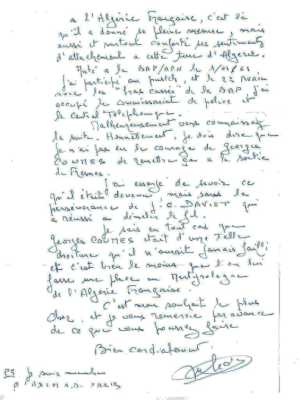 à l'Algérie Française, c'est là
qu'il a donné sa pleine mesure, mais
aussi et surtout conforté ses sentiments
d'attachement à cette terre d'Algérie.
Muté à la BAP/AFN le 1/01/61
j'ai participé au putsch, et le 22 Avril
avec les "bras cassés" de la BAP j'ai
occupé le commissariat de police et
le Central Téléphonique.
Malheureusement vous connaissez
la suite. Honnêtement, je dois dire que
je n'ai pas eu le courage de Georges
COUMES de remettre ça à la sortie
de Fresnes.
J'ai essayé de savoir ce
qu'il était devenu mais sans la
persévérance de J. C. DAVIET qui
a réussi à dénouer le fil.
Je sais en tout cas que
Georges COUMES était d'une telle
droiture qu'il n'aurait jamais failli,
et c'est bien le moins que l'on lui
fasse une place au Martyrologue
de l'Algérie Française.
C'est mon souhait le plus
cher, et je vous remercie par avance
de ce que vous pourrez faire
Bien cordialement,
PS Je suis membre